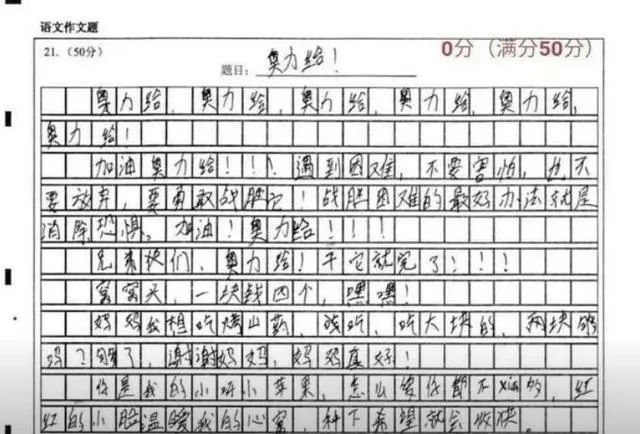 语文作文题
21.（50分） 题目：奥力给！ 0分（满分50分）
奥力给，奥力给，奥力给，奥力给，奥力给，
奥力给！
加油奥力给！！！遇到困难，不要害怕，也不
要放弃，要勇敢战胜它！战胜困难的最好办法就是
消除恐惧。加油！奥力给！！！！
们，奥力给！干它就完了！！！
窝窝头，一块钱四个，嘿嘿！
妈妈我想吃烤山药，吃，吃大块的，两块够
吗？够了，谢谢妈妈，妈妈真好！
你是我的小呀小苹果，怎么爱你都不的，红
红的小脸温暖我的心窝，种下希望就会收获。